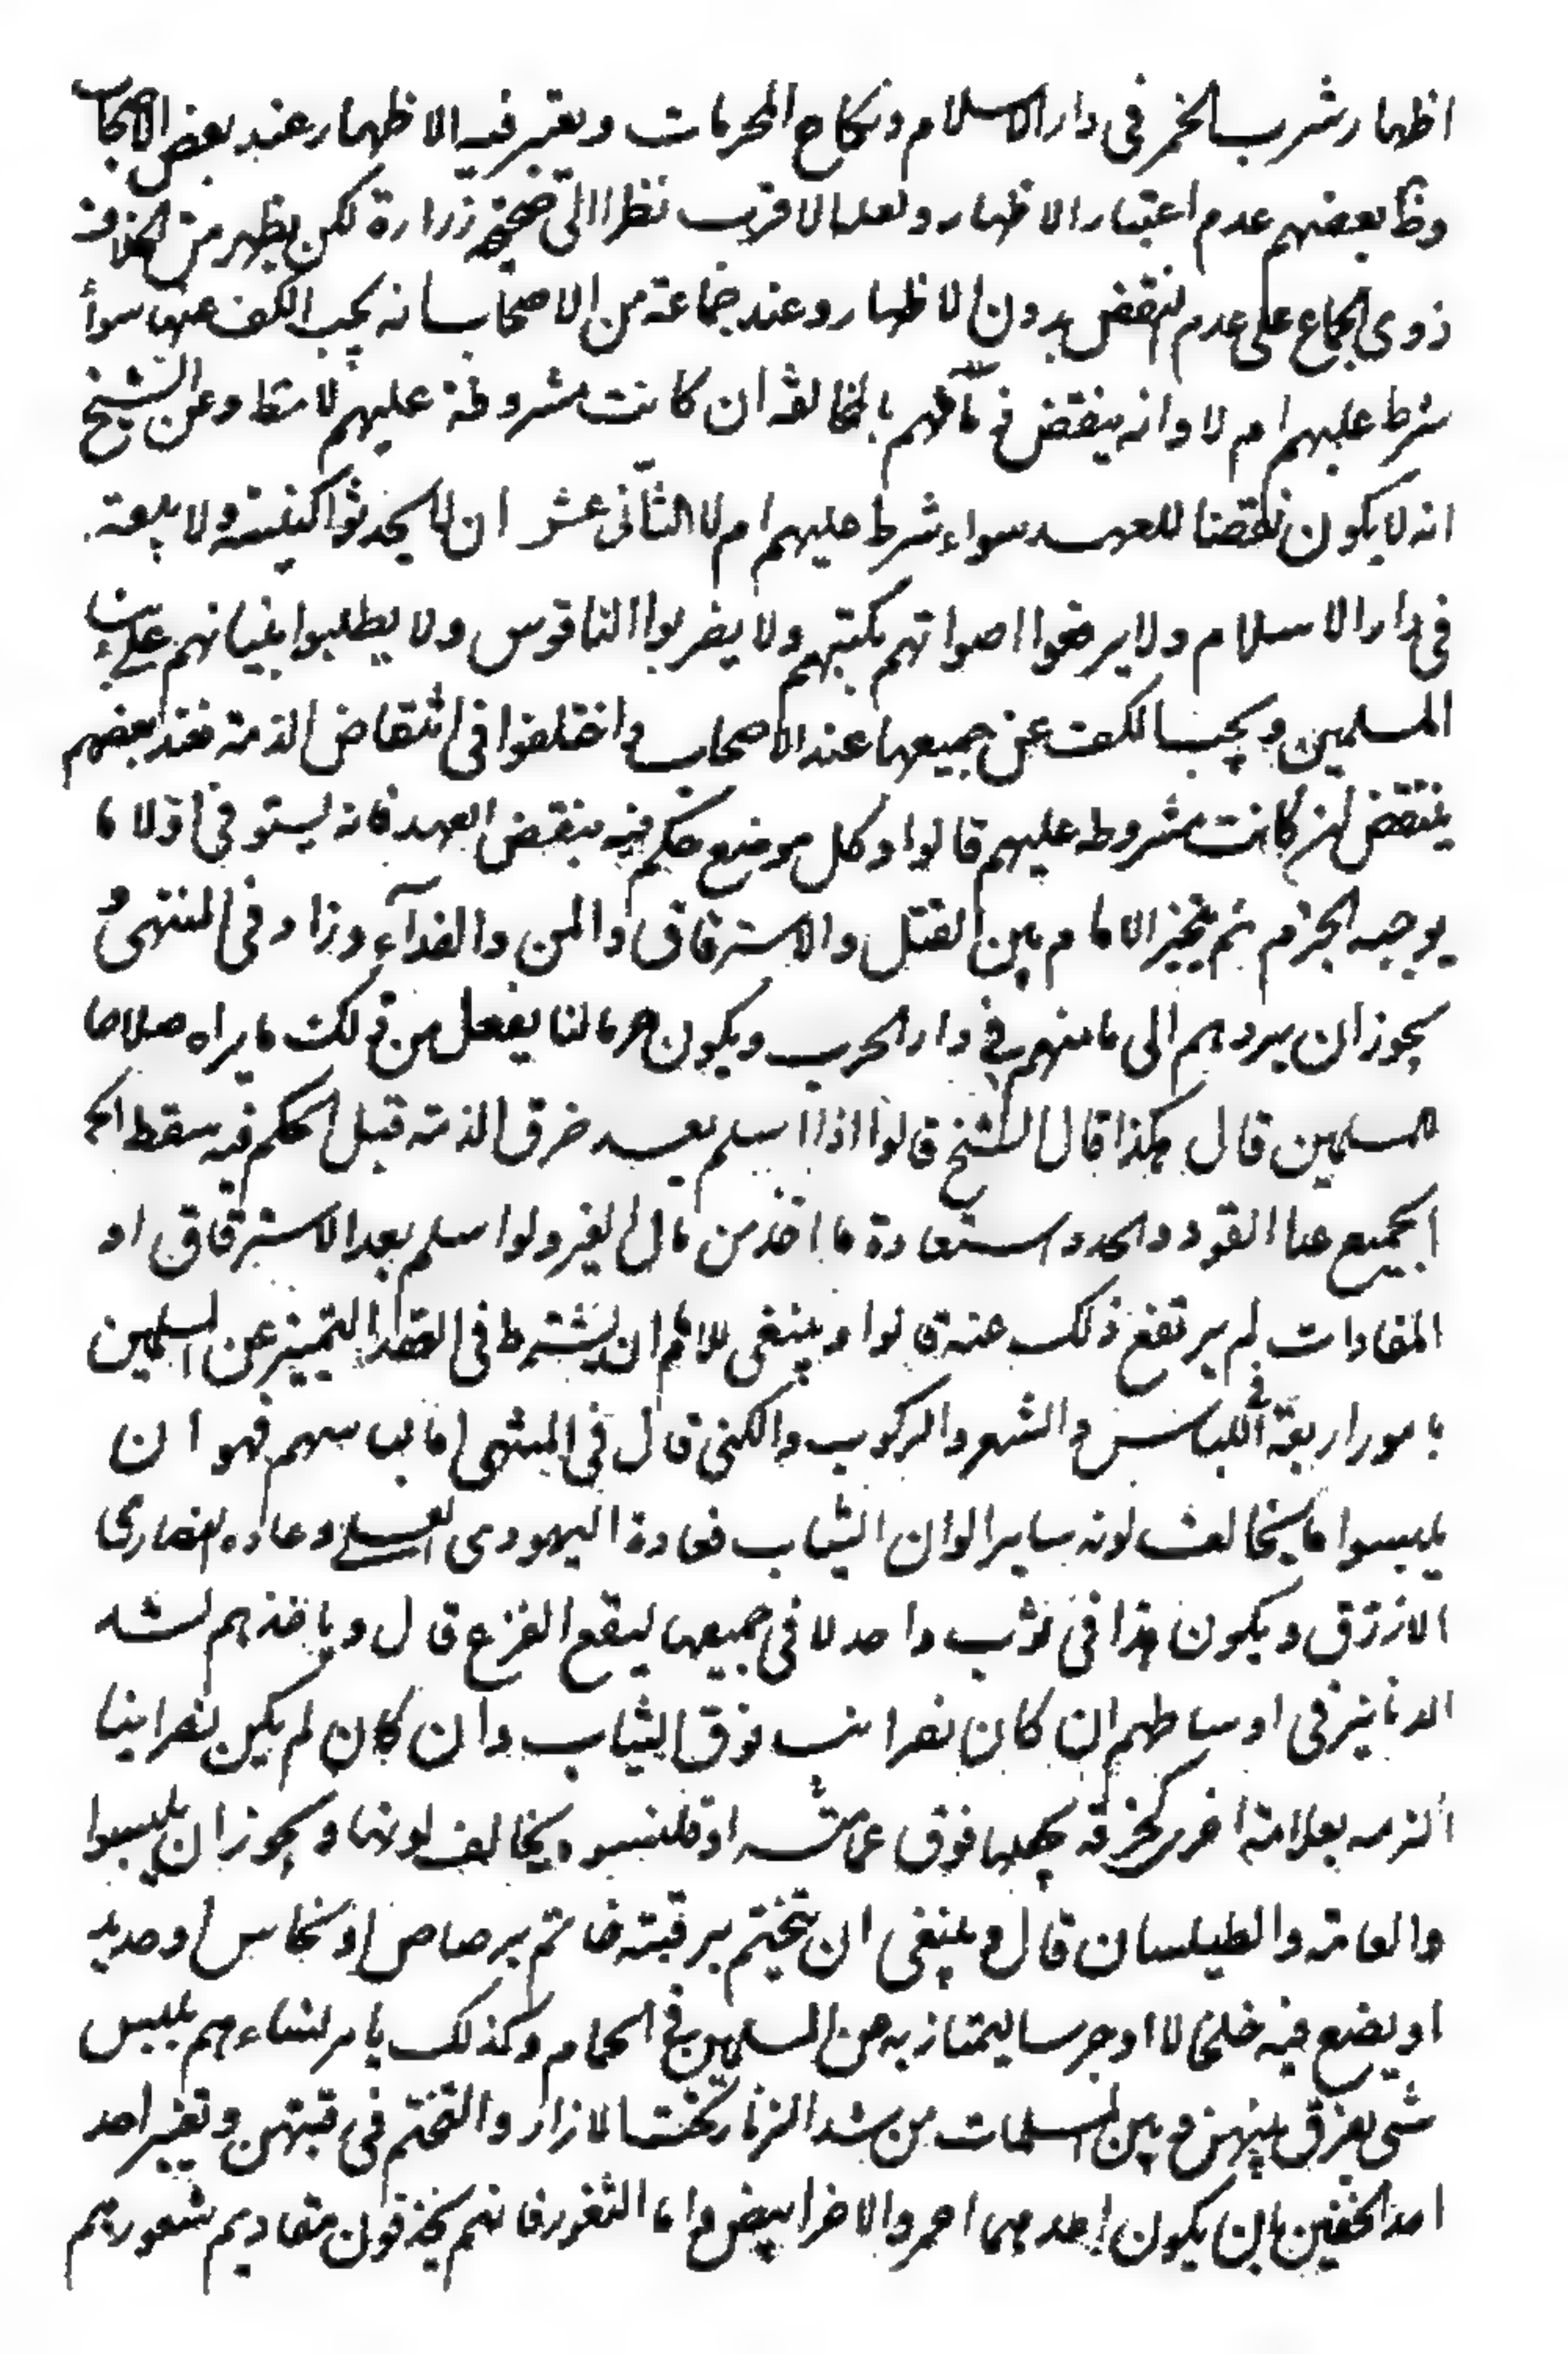 اظهار شرب الخمر فى دار الاسلام ونكاح المحرمات ويعتبر فيه الاظهار عند بعض الاصحاب
وظ بعضهم عدم اعتبار الاظهار ولعله الاقرب نظرا الى صحيحة زرارة لكن يظهر من الخلاف
دوى اجماع على عدم النقض بدون الاظهار وعند جماعة من الاصحاب انه يجب الكف عنها سواء
شرط عليهم ام لا وانه ينقض ذمامهم بالمخالفة ان كانت مشروطة عليهم لا مطا وعن الشيخ
انه لا يكون نقضا للعهد سواء شرط عليهم ام لا الثانى عشر ان لا يحدثوا كنيسة ولا بيعة
فى دار الاسلام ولا يرفعوا اصواتهم بكتبهم ولا يضربوا الناقوس ولا يطلبوا بنيانهم على بناء
المسلمين ويجب الكف عن جميعها عند الاصحاب واختلفوا فى انتقاض الذمة فعند بعضهم
ينتقض ان كانت مشروطه عليهم قالوا وكل موضع حكم فيه بنقض العهد فانه يستوفى اولا ما
يوجبه الجرم ثم يتخير الامام بين القتل والاسترقاق والمن والفداء وزاد فى المنتهى و
يجوز ان يردهم الى مامنهم فى دار الحرب ويكون حربا لنا يفعل من ذلك ما يراه صلاحا
للمسلمين قال هكذا قال الشيخ قالوا اذا اسلم بعد خرق الذمة قبل الحكم فيه سقط
الجميع عدا القود والحد واستعادة ما اخذ من مال الغير ولو اسلم بعد الاسترقاق او
المفادات لم يرتفع ذلك عنه قالوا وينبغى للامام ان يشترط فى العقد التميز عن المسلمين
بامور اربعة فى اللباس والشعر والركوب والكنى قال فى المنتهى اما لباسهم فهو ان
يلبسوا ما يخالف لونه ساير الوان الثياب فعادة اليهودى العسلى وعادة النصارى
الازرق ويكون هذا فى ثوب واحد لا فى جميعها ليقع الفرق قال وياخذهم بشد
الدنانير فى اوساطهم ان كان نصرانيا فوق الثياب وان كان لم يكن نصرانيا
الزمه بعلامة اخرى كخرقه يجعلها فوق عمامته او قلنسوه يخالف لونها ويجوز ان يلبسوا
والعمامة والطيلسان قال وينبغى ان يتختم برقبته خاتم برصاص او نحاس او حديد
او يضع فيه خلخالا او جرسا ليمتاز به من المسلمين فى الحمام وكذلك يامر نساءهم بلبس
شى يفرق بينهن وبين المسلمات من شد الزنار تحت الازار والتختم فى رقبتهن وتغير احد
احد الخفين بان يكون احدهما احمر والاخر ابيض واما الشعور فانهم يحذفون مقاديم شعورهم